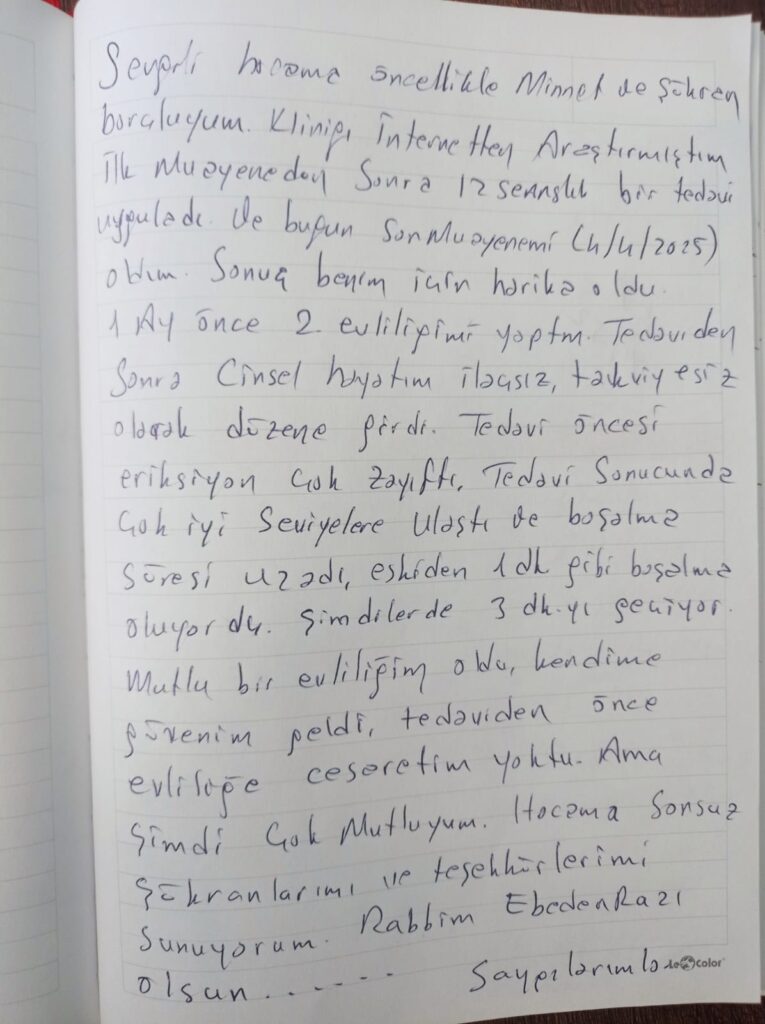 Sevgili hocama öncellikle Minnet ve şükran
borçluyum. Kliniği internetten Araştırmıştım
ilk Muayeneden Sonra 12 seanslık bir tedavi
uyguladı. Ve bugün Son Muayenemi (4/4/2025)
oldum. Sonuç benim için harika oldu.
1 Ay önce 2. evliliğimi yaptım. Tedaviden
Sonra Cinsel hayatım ilaçsız, takviyesiz
olarak düzene girdi. Tedavi öncesi
eriksiyon çok zayıftı, Tedavi Sonucunda
Çok iyi Seviyelere Ulaştı ve boşalma
Süresi uzadı, eskiden 1 dk gibi boşalma
oluyordu. Şimdilerde 3 dk.yı geçiyor.
Mutlu bir evliliğim oldu, kendime
güvenim geldi, tedaviden önce
evliliğe cesaretim yoktu. Ama
Şimdi Çok Mutluyum. Hocama Sonsuz
Şükranlarımı ve teşekkürlerimi
Sunuyorum. Rabbim Ebeden Razı
olsun......
Saygılarımla
Color